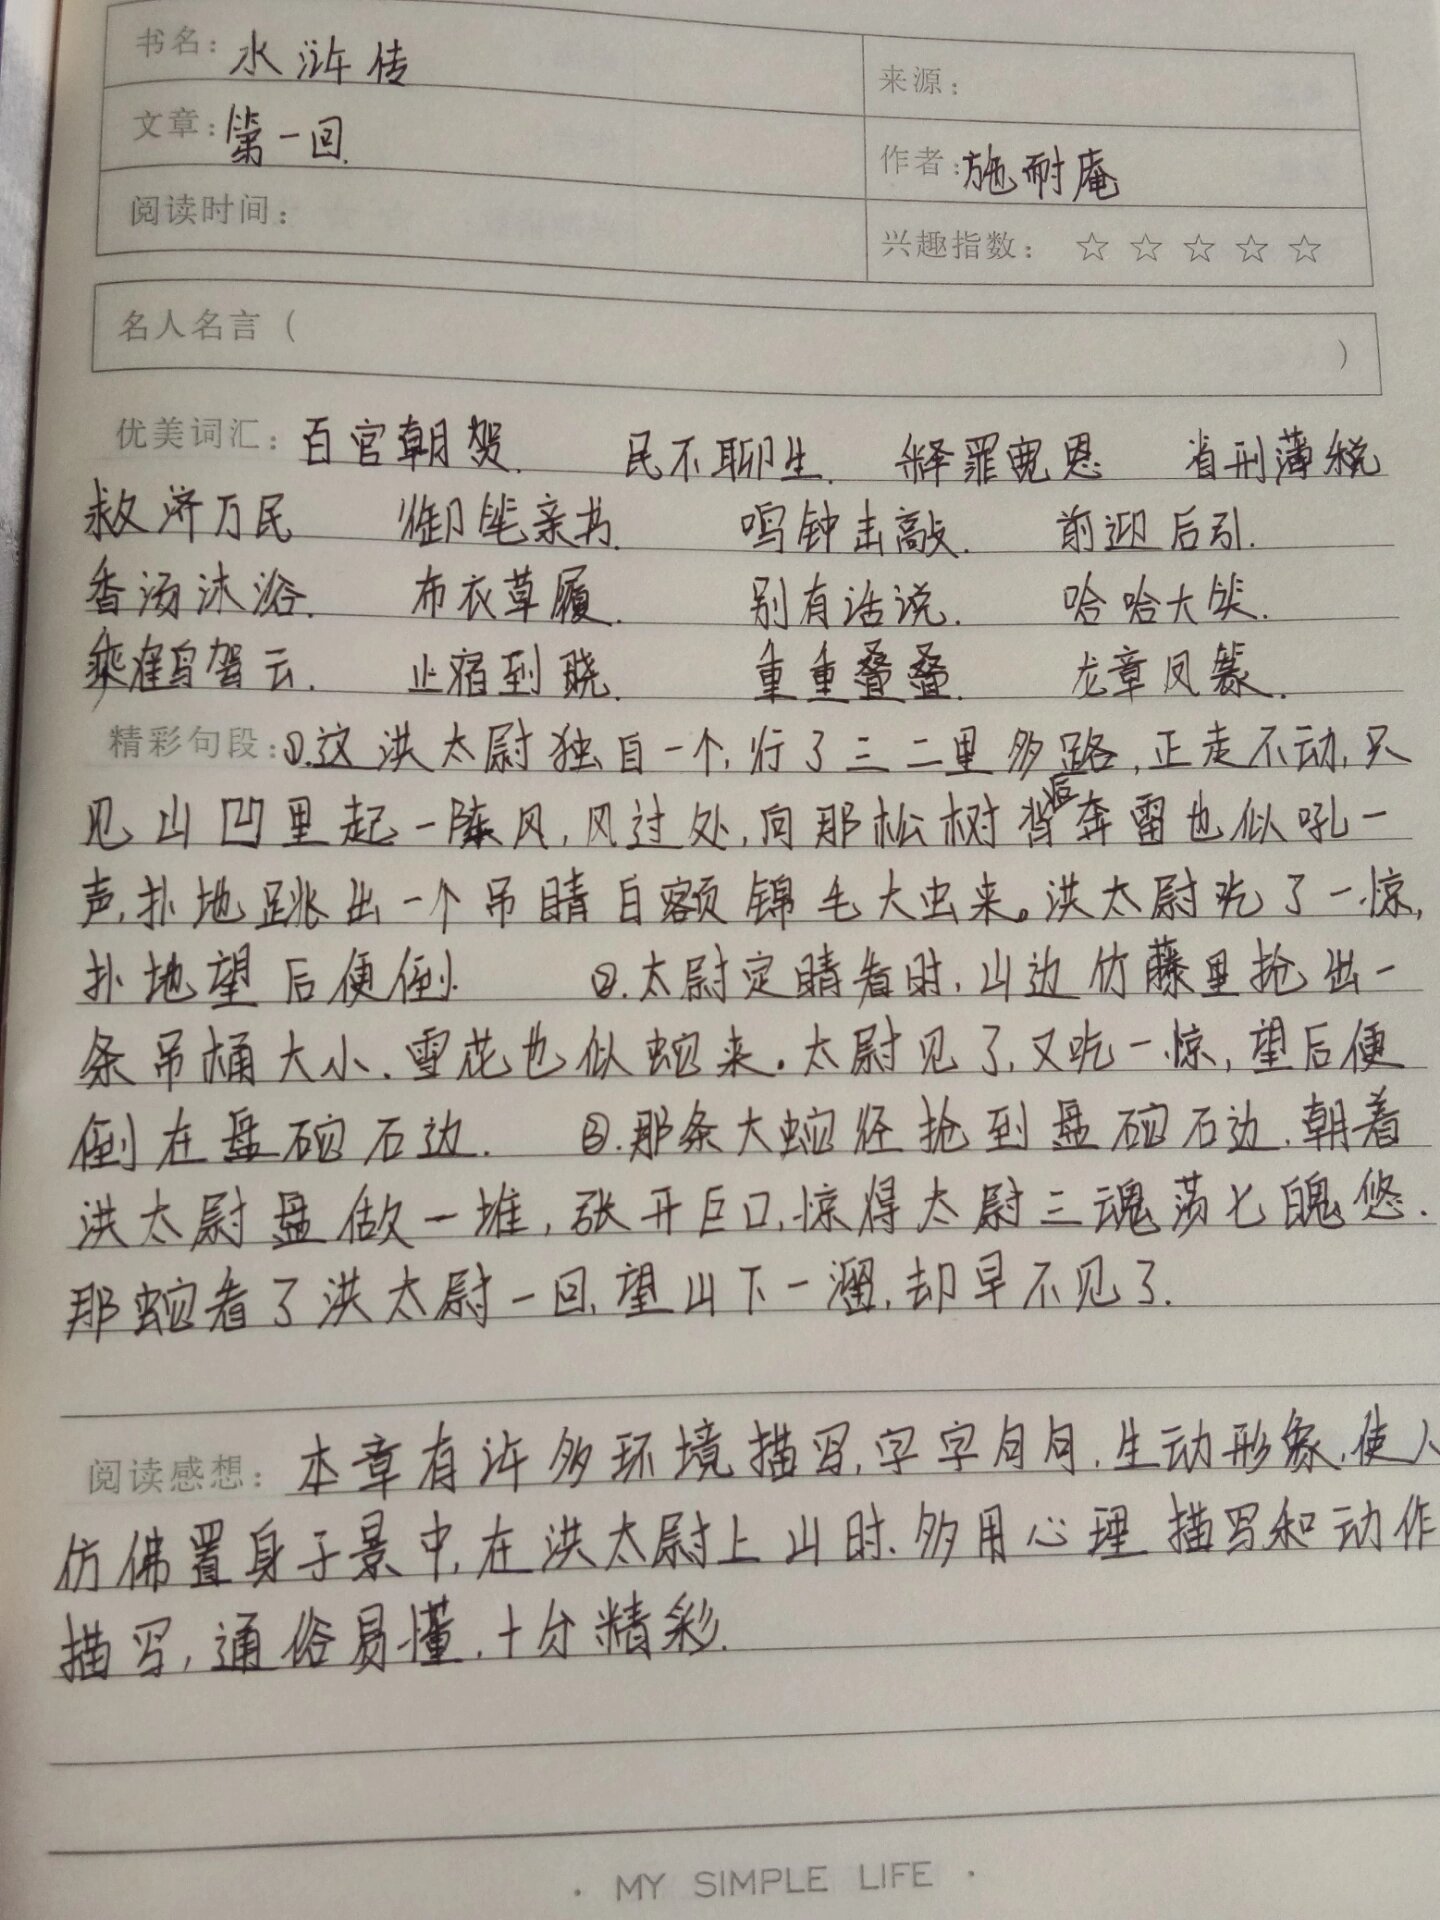 书名：水浒传
来源：
文章：第一回
作者：施耐庵
阅读时间：
兴趣指数：☆ ☆ ☆ ☆ ☆
名人名言（ ）
优美词汇：百官朝贺. 民不聊生. 释罪宽恩 省刑薄税
救济万民 御笔亲书. 鸣钟击敲. 前迎后引.
香汤沐浴. 布衣草履. 别有话说. 哈哈大笑.
乘鹤驾云. 止宿到晓. 重重叠叠. 龙章凤篆.
精彩句段：①.这洪太尉独自一个,行了三二里多路,正走不动,只
见山凹里起一阵风,风过处,向那松树背后奔雷也似吼一
声,扑地跳出一个吊睛白额锦毛大虫来。洪太尉吃了一惊,
扑地望后便倒. ②.太尉定睛看时,山边竹藤里抢出一
条吊桶大小、雪花也似蛇来.太尉见了,又吃一惊,望后便
倒在盘砣石边. ③.那条大蛇径抢到盘砣石边,朝着
洪太尉盘做一堆,张开巨口,惊得太尉三魂荡七魄悠.
那蛇看了洪太尉一回,望山下一溜,却早不见了.
阅读感想：本章有许多环境描写,字字句句,生动形象,使人
仿佛置身于景中,在洪太尉上山时,多用心理描写和动作
描写,通俗易懂,十分精彩.
· MY SIMPLE LIFE ·